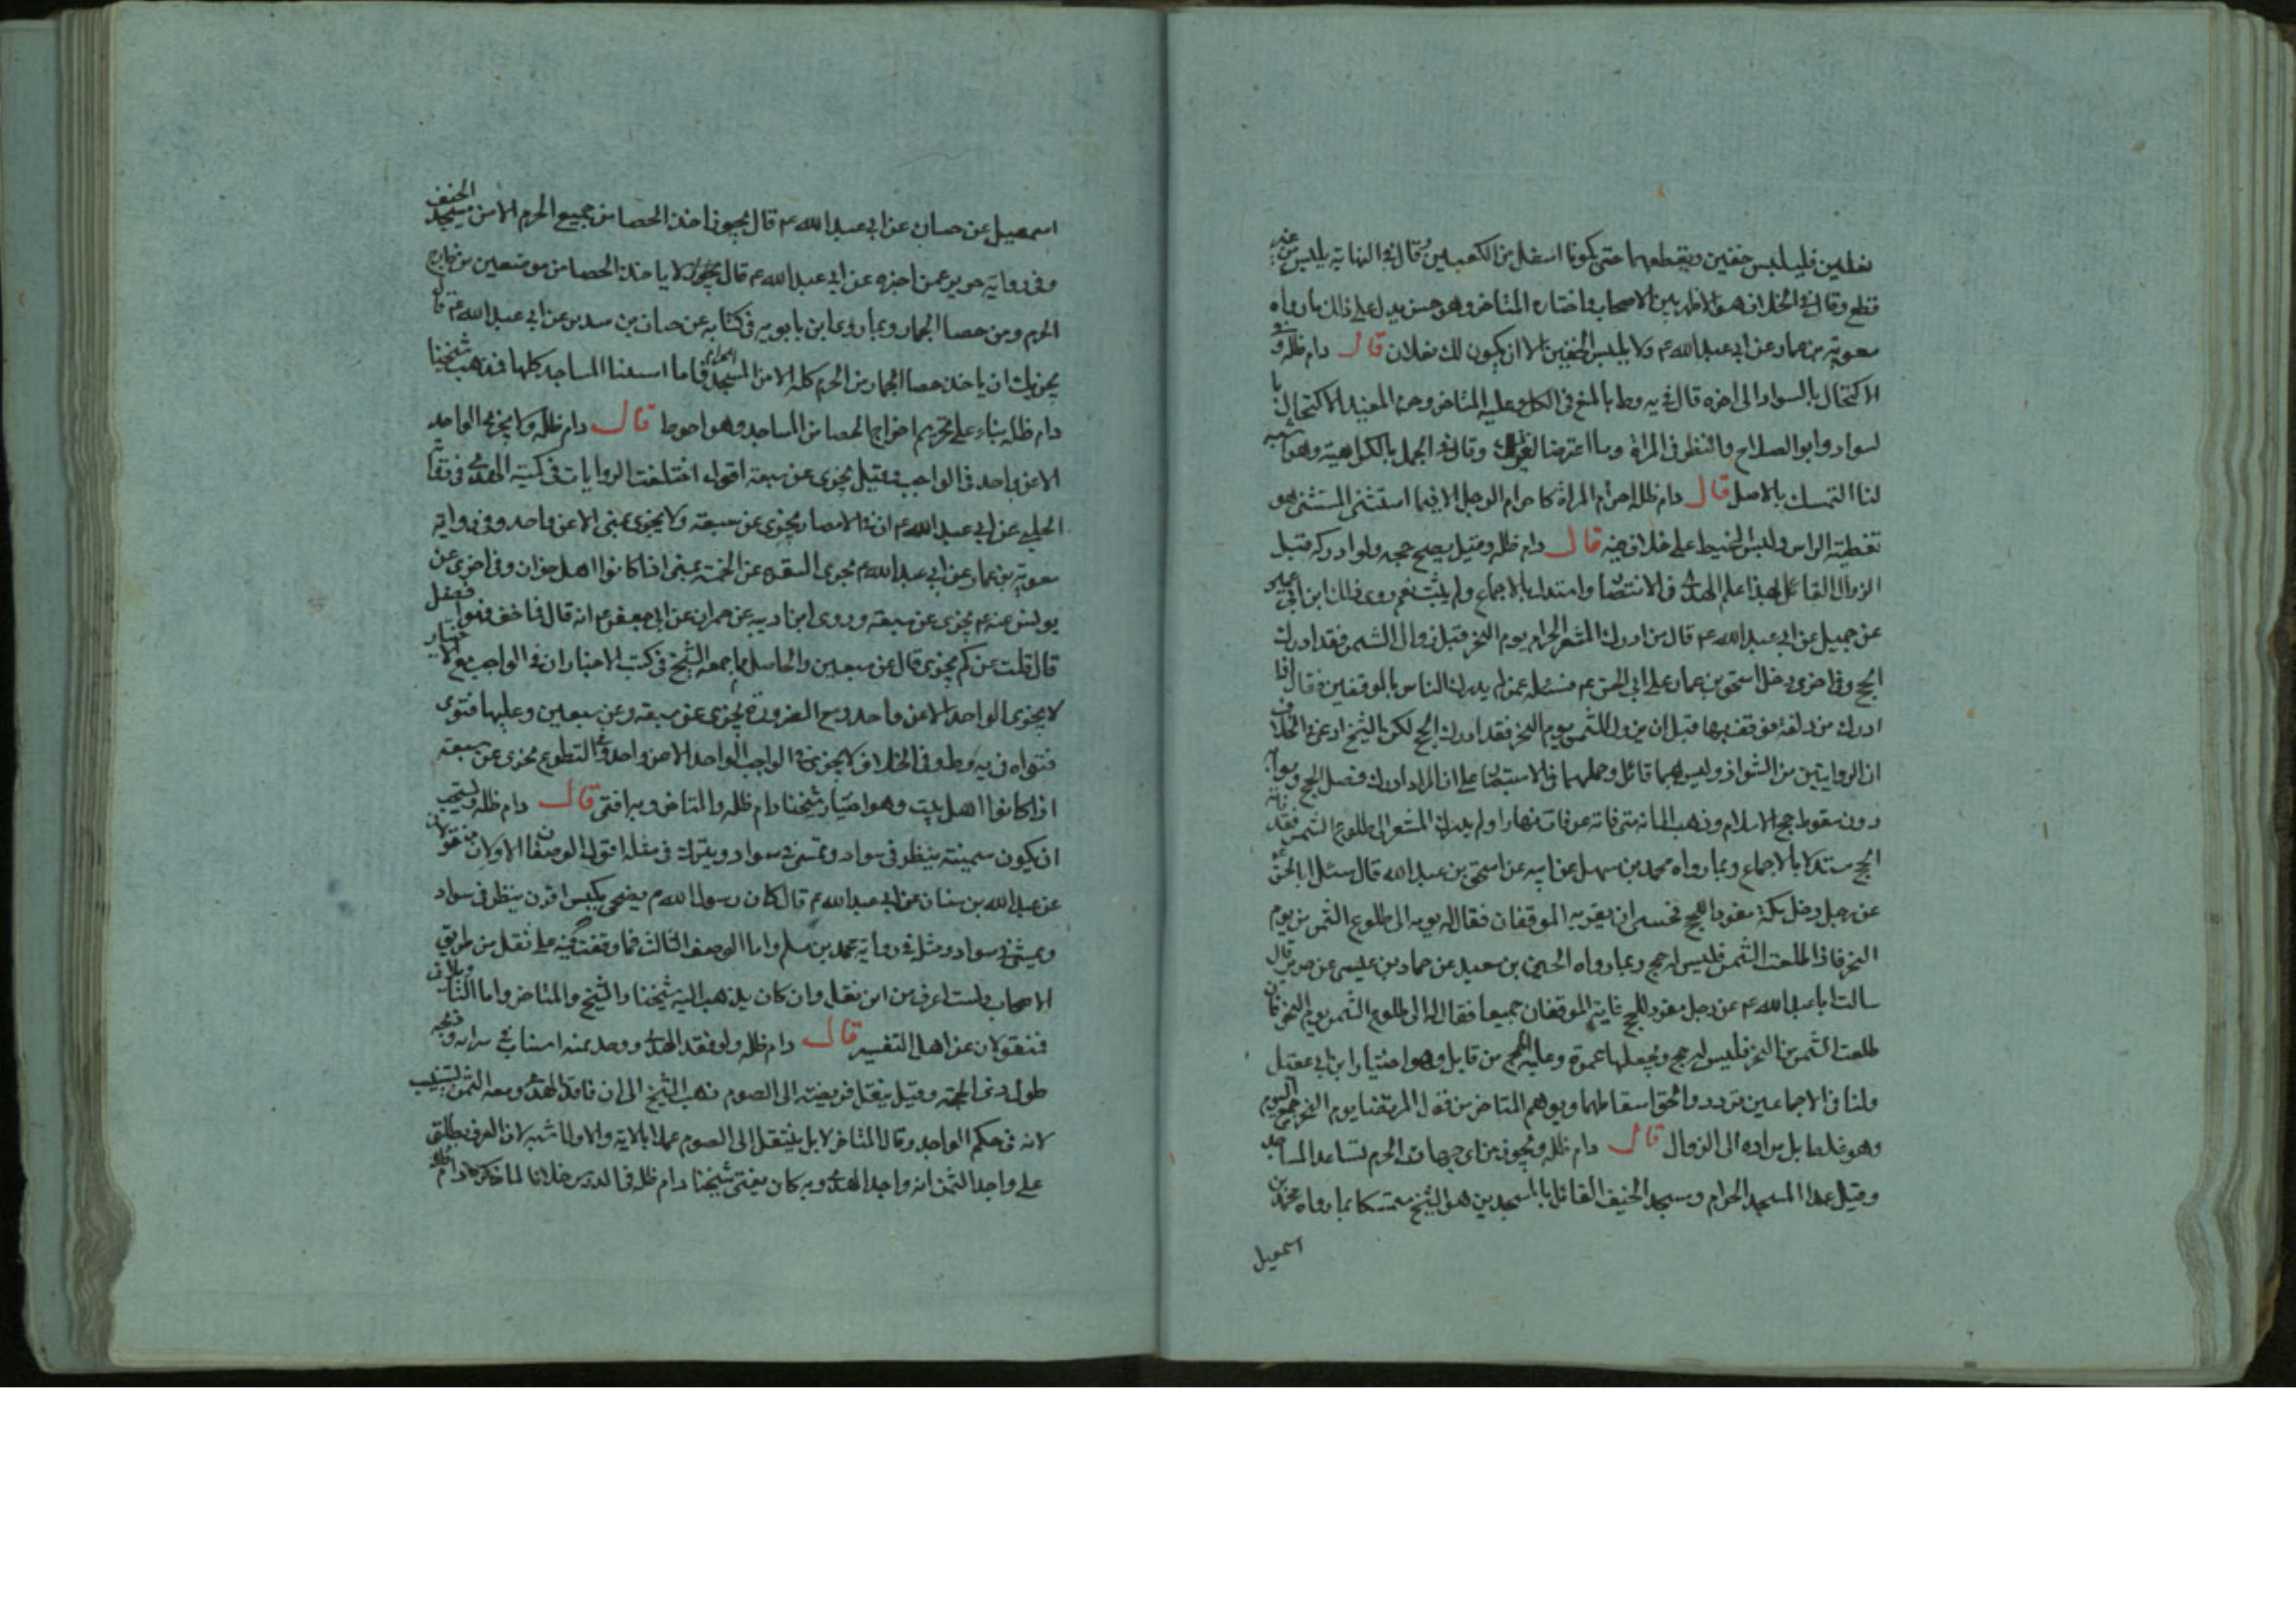 نعلين فليلبس خفين ويقطعهما حتى يكونا اسفل من الكعبين وقال في النهاية يلبس من غير
قطع وقال في الخلاف هو الاظهر بين الاصحاب واختاره المتاخر وهو حسن يدل على ذلك ما رواه
معوية بن عمار عن ابي عبد الله ع ولا يلبس الخفين الا ان يكون لك نعلان قال دام ظله وفي
الاكتحال بالسواد الى اخره قال في يه وط بالمنع في الكل وعليه المتاخر وحرم المفيد الاكتحال با
لسواد وابو الصلاح والنظر في المراة وما اعترضا لغير ذلك وقال في الجمل بالكراهية وهو اشبه
لنا التمسك بالاصل قال دام ظله احرام المراة كاحرام الرجل الا فيما استثنى المستثنى هو
تغطية الراس ولبس المخيط على خلاف فيه قال دام ظله وقيل يصح حجه ولو ادركه قبل
الزوال القائل بهذا علم الهدى في الانتصار وامتدل بالاجماع ولم يثبت نعم روى ذلك ابن ابي عمير
عن جميل عن ابي عبد الله ع قال من ادرك المشعر الحرام يوم النحر قبل زوال الشمس فقد ادرك
الحج وفي اخرى دخل اسحق بن عمار على ابي الحسن ع فسئله عمن لم يدرك الناس بالموقفين فقال اذا
ادرك مزدلفة فوقف بها قبل ان يزول الشمس يوم النحر فقد ادرك الحج لكن الشيخ ادعى في الخلاف
ان الروايتين من الشواذ وليس بهما قائل وحملهما في الاستبصار على ان المراد ادرك فضل الحج وثوابه
دون سقوط حج الاسلام وذهب الى انه متى فاته عرفات نهارا ولم يدرك المشعر الى طلوع الشمس فقد فاته
الحج مستدلا بالاجماع وبما رواه محمد بن سهل عن ابيه عن اسحق بن عبد الله قال سئل ابا الحسن ع
عن رجل دخل مكة مفردا للحج فخشى ان يفوته الموقفان فقال له يومه الى طلوع الشمس من يوم
النحر فاذا طلعت الشمس فليس له حج وبما رواه الحسين بن سعيد عن حماد بن عيسى عن حريز قال
سالت ابا عبد الله ع عن رجل مفرد للحج فاته الموقفان جميعا فقال له الى طلوع الشمس يوم النحر فان
طلعت الشمس من النحر فليس له حج ويجعلها عمرة وعليه الحج من قابل وهو اختيار ابن ابي عقيل
ولنا في الاجماعين تردد والحق اسقاطهما ويوهم المتاخر من قول المرتضى يوم النحر جميع اليوم
وهو غلط بل مراده الى الزوال قال دام ظله ويجوز من اى جهات الحرم شاء عدا المساجد
وقيل عدا المسجد الحرام ومسجد الخيف القائل بالمسجدين هو الشيخ متمسكا بما رواه محمد بن
اسمعيل
اسمعيل عن حسان عن ابي عبد الله ع قال يجوز اخذ الحصا من جميع الحرم الا من مسجد الخيف
وفي رواية حريز عمن اخبره عن ابي عبد الله ع قال لا ياخذ الحصا من موضعين من خارج
الحرم ومن حصا الجمار وبما روى ابن بابويه في كتابه عن حنان بن سدير عن ابي عبد الله ع قال
يجزيك ان ياخذ حصا الجمار من الحرم كله الا من المسجد الحرام فاما المساجد كلها فذهب شيخنا
دام ظله بناء على تحريم اخراج الحصا من المساجد وهو احوط قال دام ظله ولا يجزي الواحد
الا عن واحد في الواجب وقيل يجزى عن سبعة اقول اختلفت الروايات في كمية الهدى ففي
الحلبي عن ابي عبد الله ع ان في الامصار يجزى عن سبعة ولا يجزى بمنى الا عن واحد وفي رواية
معوية بن عمار عن ابي عبد الله ع يجزى البقرة عن الخمسة بمنى اذا كانوا اهل خوان وفي اخرى عن
يونس عنه ع يجزى عن سبعة وروى ابن اذينة عن حمران عن ابي جعفر ع انه قال
قال قلت عن كم يجزى قال عن سبعين والحاصل ما جمعه الشيخ في كتب الاخبار ان في الواجب مع الاختيار
لا يجزى الواحد الا عن واحد ومع الضرورة يجزى عن سبعة وعن سبعين وعليها فتوى
فتواه في يه وط وفي الخلاف لا يجزي في الواجب الواحد الا عن واحد وفي التطوع يجزى عن سبعة
اذا كانوا اهل بيت وهو اختيار شيخنا دام ظله والمتاخر وبه افتى قال دام ظله ويستحب
ان يكون سمينة ينظر في سواد وتمشى في سواد ويبرك في مثله اقول الوصفان الاولان منقولان
عن عبد الله بن سنان عن ابي عبد الله ع قال كان رسول الله ص يضحى بكبش اقرن ينظر في سواد
ويمشى في سواد ومثله في رواية محمد بن مسلم واما الوصف الثالث فما وقفت فيه على نقل من طريق
الاصحاب ولست اعرف من اين نقل وان كان يذهب اليه شيخنا والشيخ والمتاخر واما
فمنقولان عن اهل التفسير قال دام ظله ولو فقد الهدى ووجد ثمنه استناب في شرائه وذبحه
طول ذى الحجة وقيل ينتقل فريضته الى الصوم ذهب الشيخ الى ان فاقد الهدى ومعه الثمن يستنيب
لانه في حكم الواجد وقال المتاخر لا بل ينتقل الى الصوم عملا بالاية والاول اشبه لان العرف يطلق
على واجد الثمن انه واجد الهدى وبه كان يفتى شيخنا دام ظله في الدرس خلافا لما ذكره دام ظله